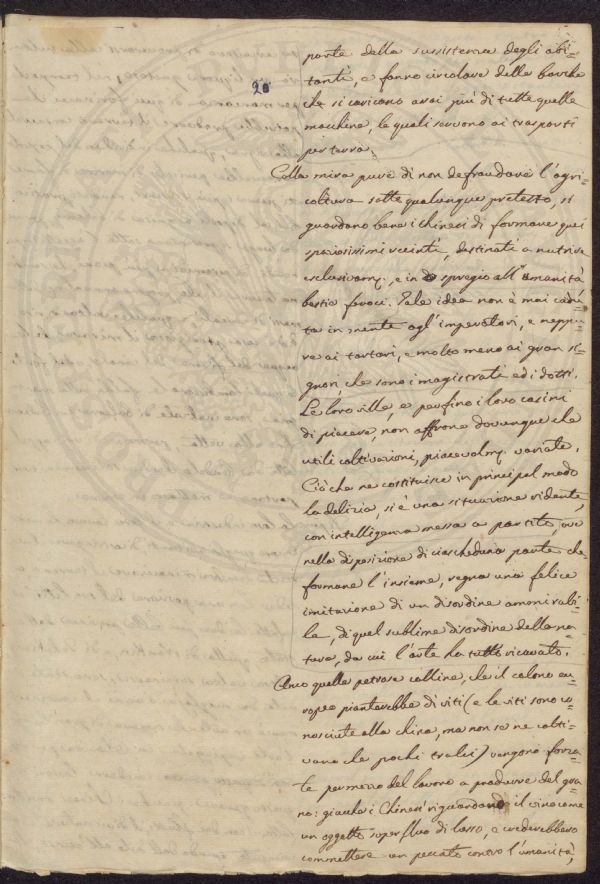 20
parte della sussistenza degli abi-
tanti, e fanno circolare delle barche
che si caricano assai più di tutte quelle
macchine, le quali servono ai trasporti
per terra.
Colla mira pure di non defraudare l'agri-
coltura sotto qualunque pretesto, si
guardano bene i chinesi di formare quei
spaziosissimi recinti, destinati a nutrire
esclusivamṇ. e in dispregio all'umanità
bestie feroci. Tale idea non è mai cadu-
ta in mente agl'imperatori, e neppu-
re ai tartari, e molto meno ai gran si-
gnori, che sono i magistrati ed i dotti.
Le loro ville, e perfino i loro casini
di piacere, non offrono dovunque che
utili coltivazioni, piacevolmṇ. variate.
Ciò che ne costituisce in principal modo
la delizia, si è una situazione ridente,
con intelligenza messa a partito, ove
nella disposizione di ciascheduna parte che
formano l'insieme, regna una felice
imitazione di un disordine ammirabi-
le, di quel sublime disordine della na-
tura, da cui l'arte ha tutto ricavato.
Anco quelle petrose colline, che il colono eu-
ropeo pianterebbe di viti (e le viti sono co-
nosciute alla china, ma non se ne colti-
vano che pochi tralci) vengono forza-
te per mezzo del lavoro a produrre del gra-
no: giacché i Chinesi riguardando il vino come
un oggetto superfluo di lusso, e crederebbero
commettere un peccato contro l'umanità,